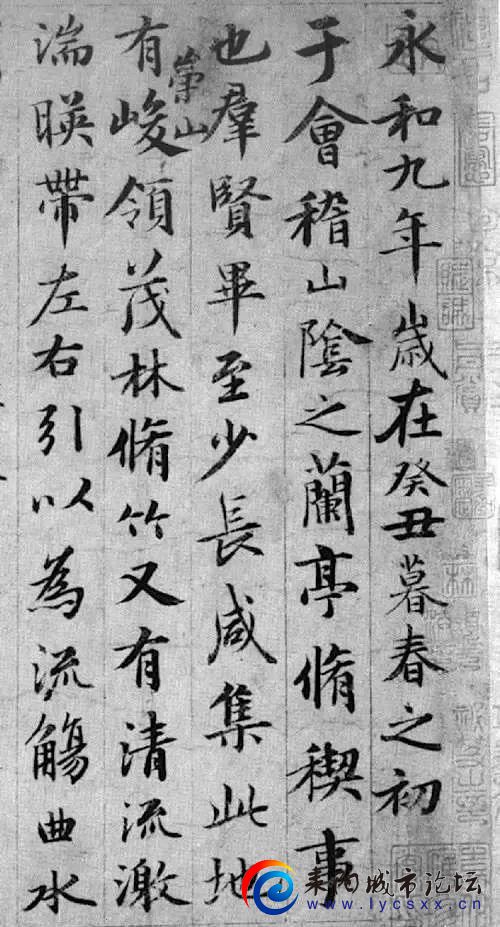 永和九年歲在癸丑暮春之初會
于會稽山陰之蘭亭脩稧事
也羣賢畢至少長咸集此地
有崇山峻領茂林脩竹又有清流激
湍暎帶左右引以為流觴曲水
耒阳城市论坛
www.lycsxx.cn